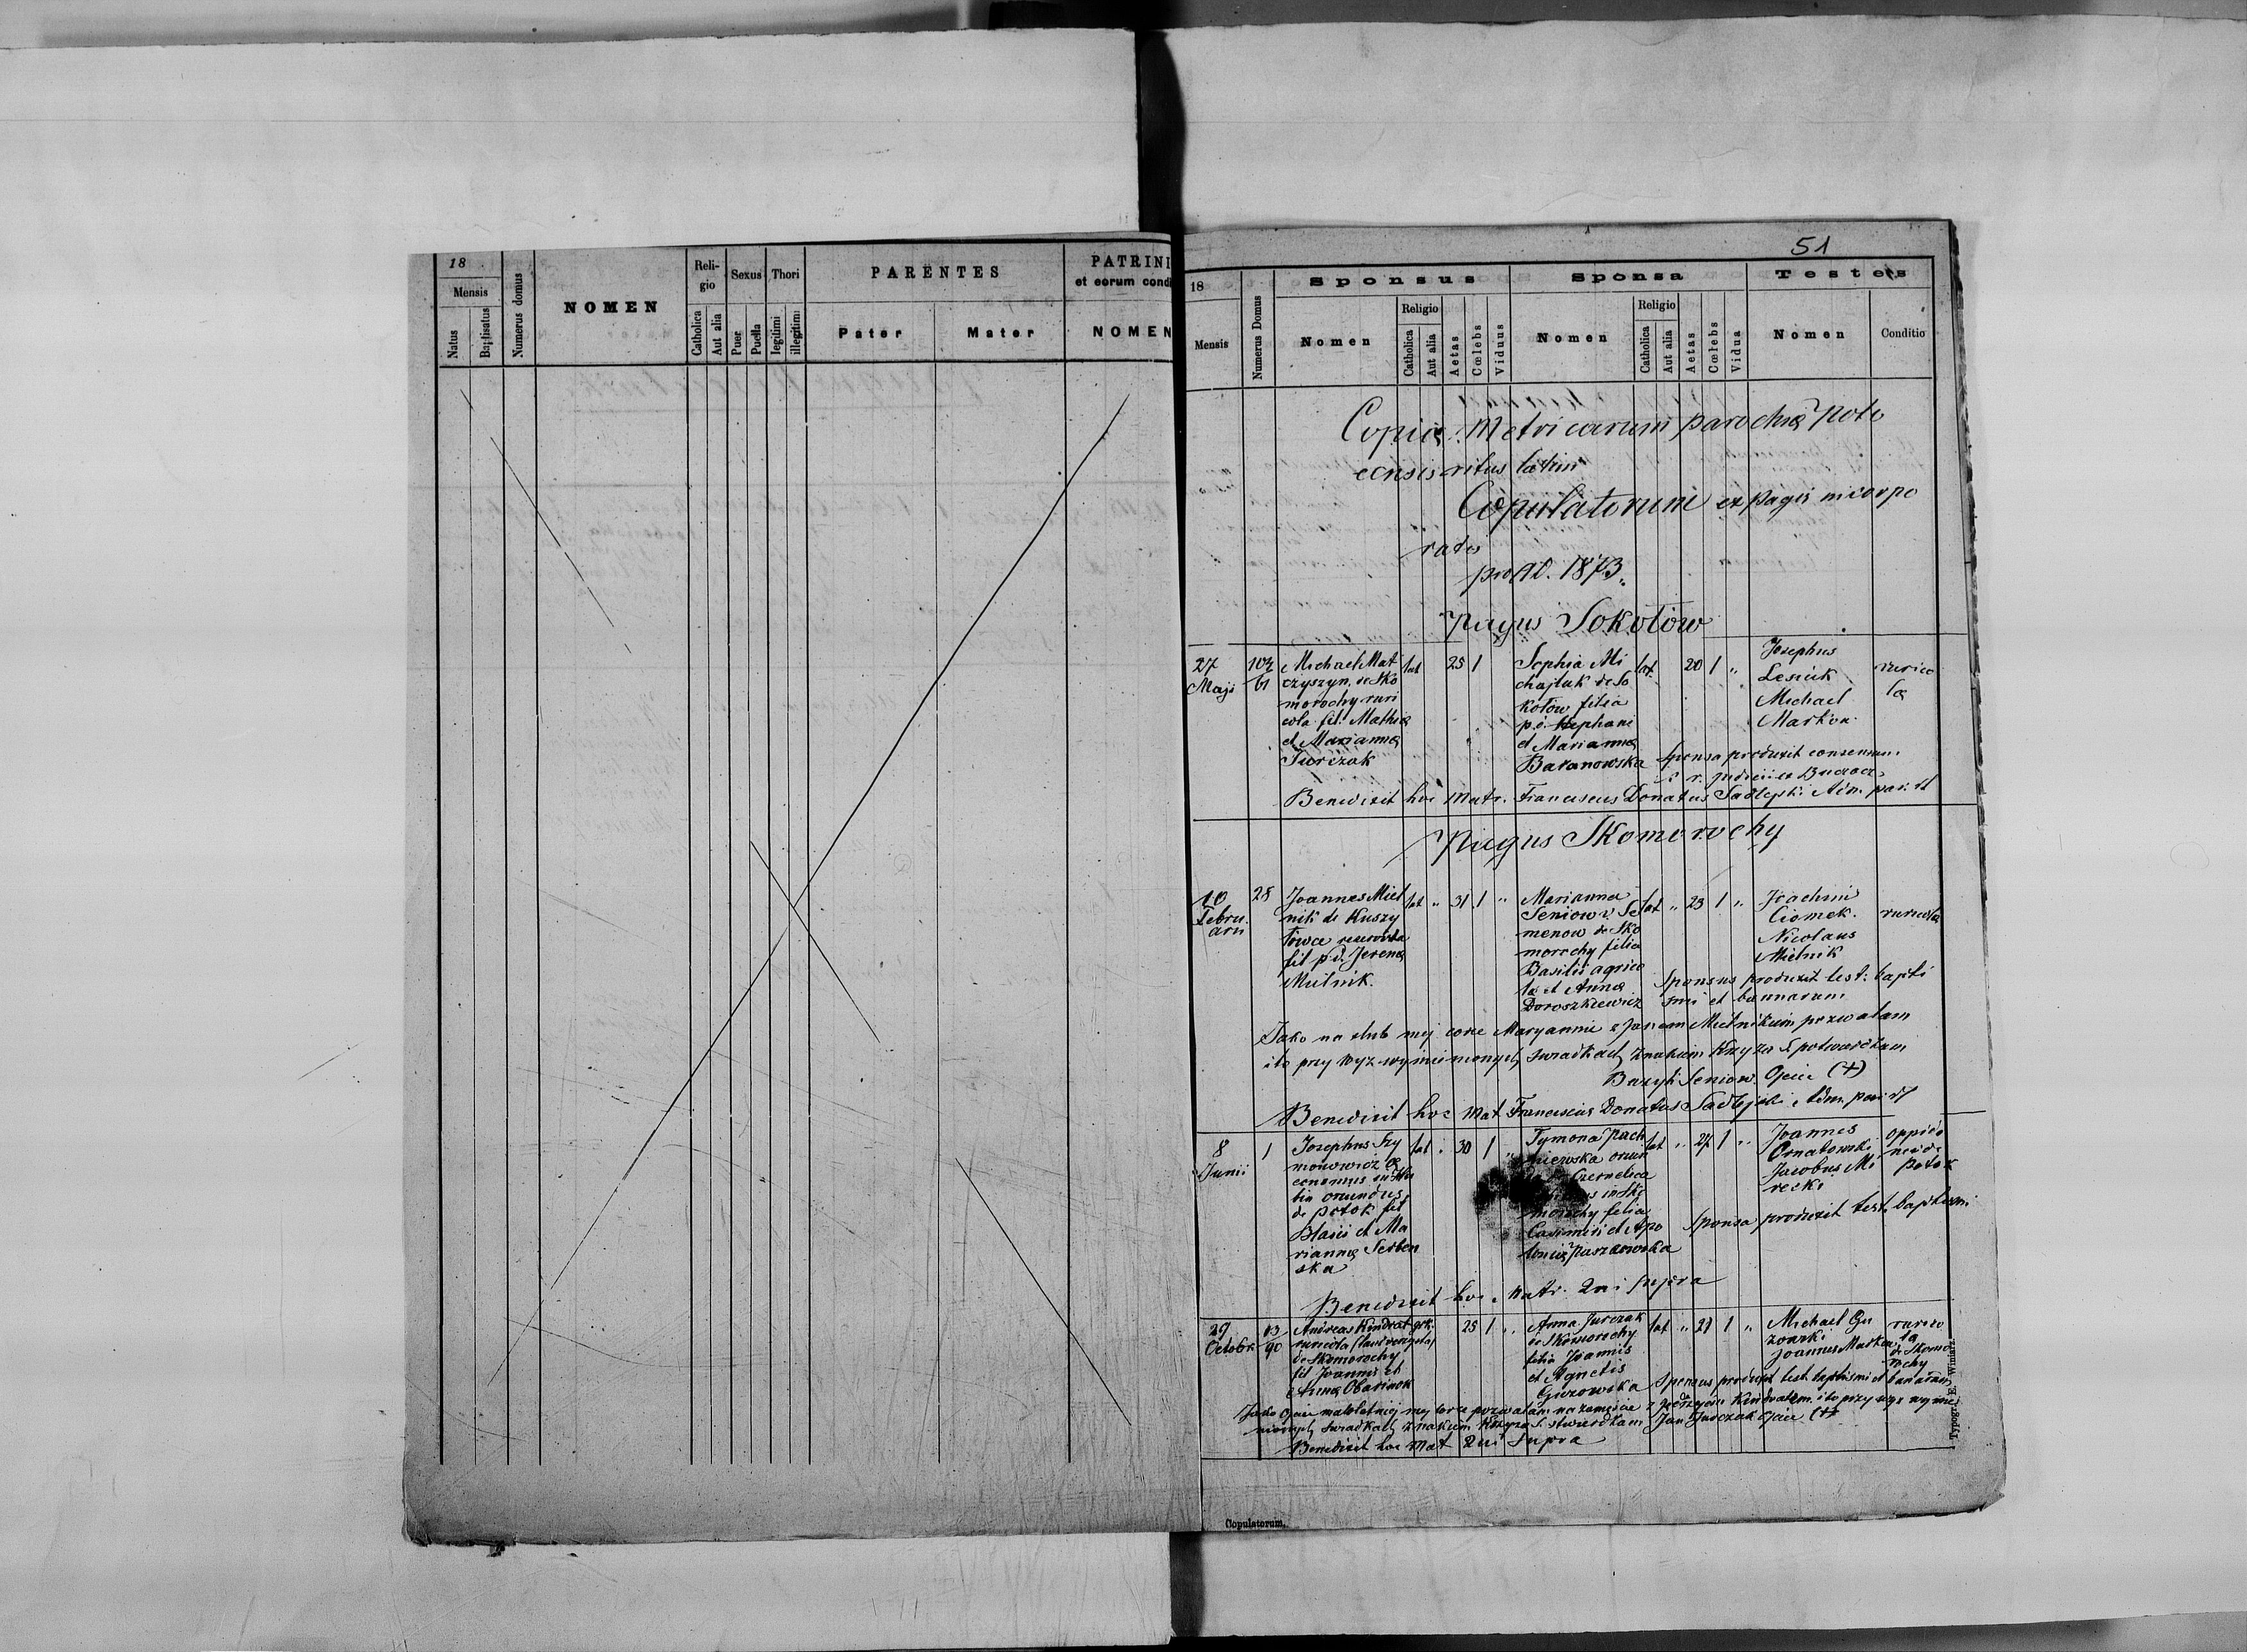 18
Mensis
Natus
Baptisatus
Numerus domus
NOMEN
Reli-
gio
Catholica
Aut alia
Sexus
Puer
Puella
Thori
legitimi
illegitimi
PARENTES
Pater
Mater
PATRINI
et eorum condi
NOMEN
51
18
Mensis
Numerus Domus
Sponsus
Nomen
Religio
Catholica
Aut alia
Aetas
Cœlebs
Viduus
Sponsa
Nomen
Religio
Catholica
Aut alia
Aetas
Cœlebs
Vidua
Testes
Nomen
Conditio
Copia Metricarum parochiæ Poto
censis ritus latini
Copulatorum ex pagis incorpo
ratis
pro A. 1873.
Pagus Sokołów
27
Maji
102
61
Michael Mat
czyszyn de Sko
morochy ruri
cola fil. Mathiæ
et Mariannæ
Jurczak
lat
25 1
Sophia Mi
chajluk de So
kołow filia
p.d. Stephani
et Mariannæ
Baranowska
lat.
20 1 "
Josephus
Lesiuk
Michael
Markow
rurico
læ
Sponsa produxit consensum
c. r. judicii ex Buczacz
Benedixit hoc Matr. Franciscus Donatus Sadlejski Adm. par.
Pagus Skomorochy
10
Febru
arii
28
Joannes Miel
nik de Kuszy
łowce
fil p.d. Jerema
Mielnik.
lat " 31 1 "
Marianna
Seniow v. Se
menow de Sko
morochy filia
Basilii agrico
læ et Annæ
Doroszkiewicz
lat " 23 1 "
Joachim
Ciomek.
Nicolaus
Mielnik
ruricolæ
Sponsus produxit test: bapti
smi et bannorum
Jako na ślub mej córce Maryannie z Janem Mielnikiem pozwalam
i to przy wyż wymienionych świadkach znakiem Krzyża S. potwierdzam
Bazyli Seniow. Ojciec (+)
Benedixit hoc Mat Franciscus Donatus Sadlejski Adm. par.
8
Junii
1
Josephus Szy
monowicz œ
conomus in
oriundus
de Potok fil
Blasii et Ma
riannæ Serben
ska
lat . 30 1 "
Tymona Pach
niewska oriun
Czernelica
in Sko
morochy filia
Casimiri et Apo
loniæ Paszkowska
lat " 27 1 "
Joannes
Ornatowski
Jacobus Mi
recki
oppida
nei de
Potok
Sponsa produxit test. baptismi
Benedixit hoc Matr. Qui supra
29
Octobr
13
90
Andreas Kindrat
ruricola
de Skomorochy
fil Joannis et
Annæ Obarinok
grk.
25 1 "
Anna Jurczak
de Skomorochy
filia Joannis
et Agnetis
Guzowska
lat " 21 1 "
Michael Gu
zowski
Joannes Markow
rurico
læ
de Skomo
rochy
Sponsus produxit test baptismi et bannorum
Jako Ojciec małoletniej mej córce pozwalam na zamęście z Jędrzejem Kindratem i to przy wyż wymie
nionych świadkach znakiem Krzyża S. stwierdzam Jan Jurczak ojciec (+)
Benedixit hoc Mat Qui supra
Typogr. E. Winiarz.
Copulatorum.